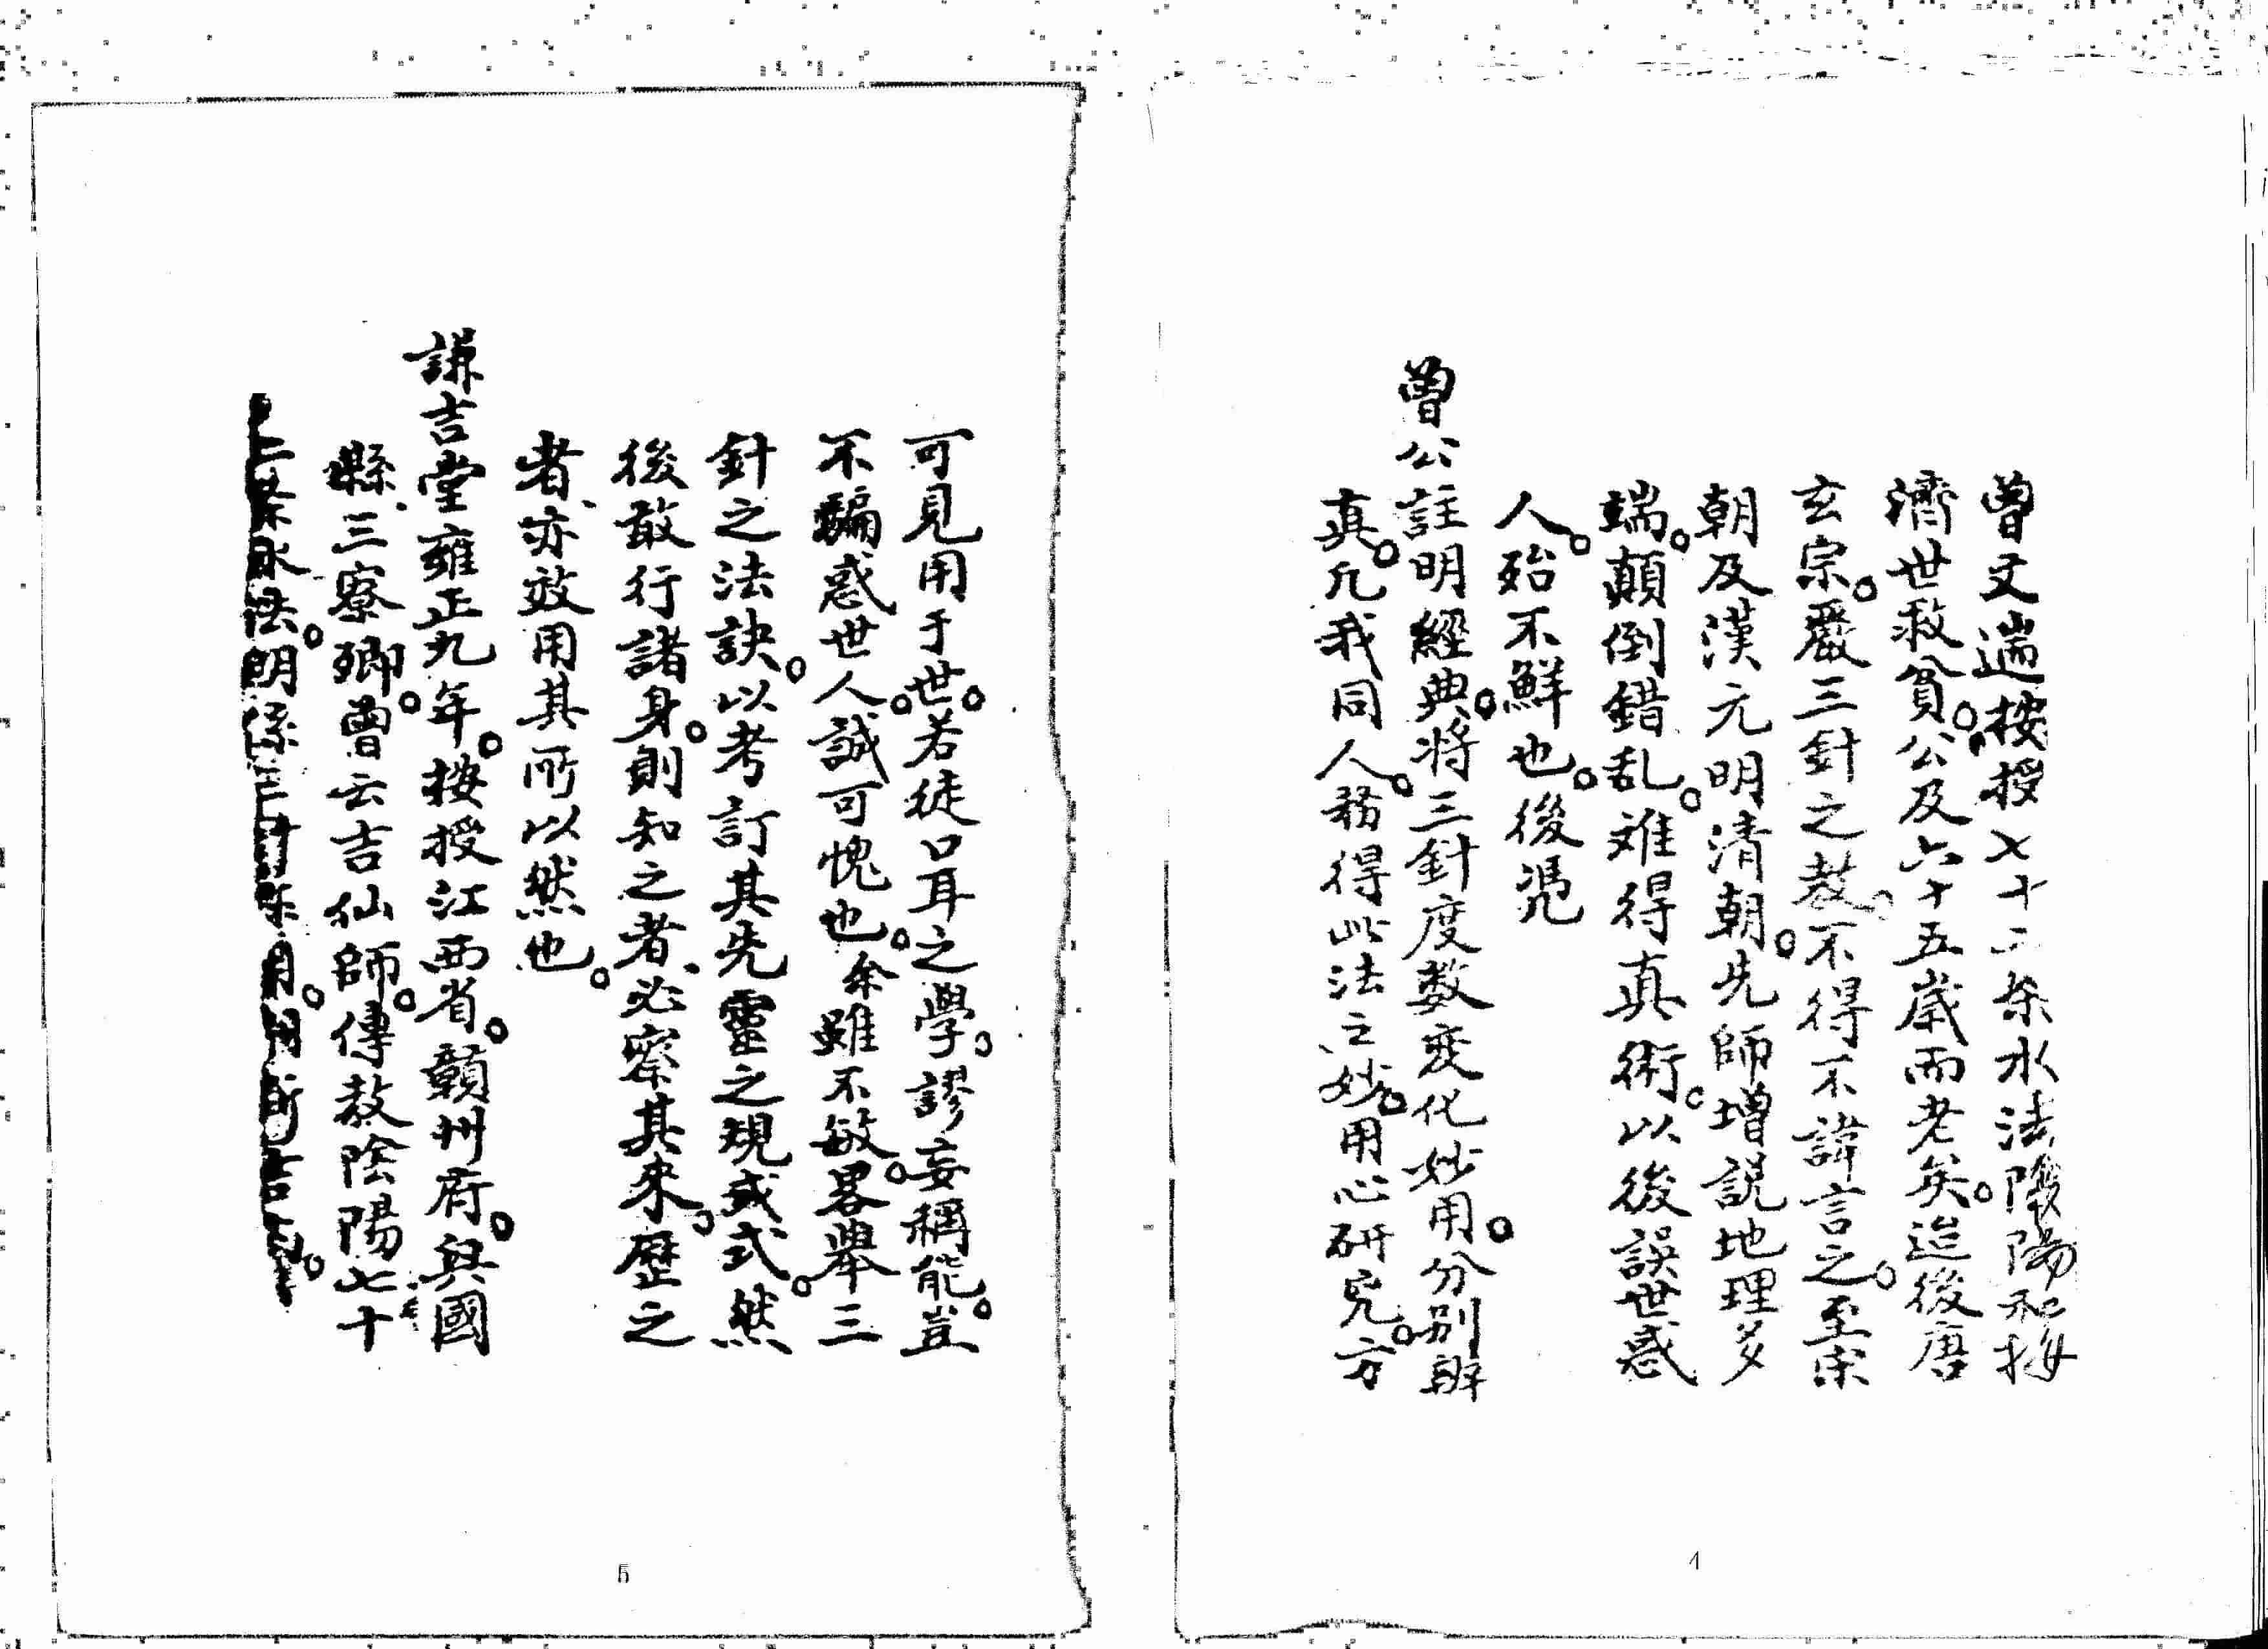 曾文遄按授七十二条水法陰陽和扮
濟世救貧。公及六十五歲而老矣。迨後唐
玄宗。嚴三針之教。不得不諱言之。至宋
朝及漢元明清朝。先師增説地理多
端。顛倒錯乱。难得真術。以後誤世惑
人。殆不鮮也。後憑
曾公註明經典。將三針度数变化妙用。分别辨
真。凡我同人。務得此法之妙。用心研究。方
4
可見用于世。若徒口耳之學。謬妄稱能。豈
不騙惑世人。誠可愧也。余雖不敏。畧舉三
針之法訣。以考訂其先靈之規式。然
後敢行諸身。則知之者、必察其来歷之
者、亦效用其所以然也。
謙吉堂雍正九年。按授江西省。贛州府。興國
縣、三寮鄉。曾云吉仙師。傳教陰陽七十
二条水法。明係三針
5